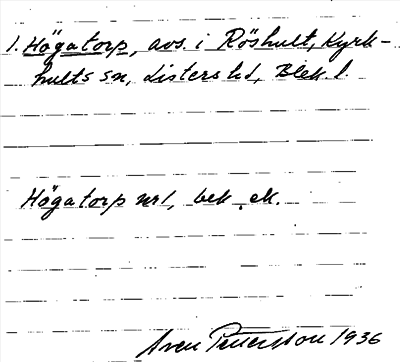 1. Högatorp, avs. i Röshult, Kyrk-
hults sn, Listers hd, Blek. l.
Högatorp nr 1, bek. ek.
Sven Pettersson 1936